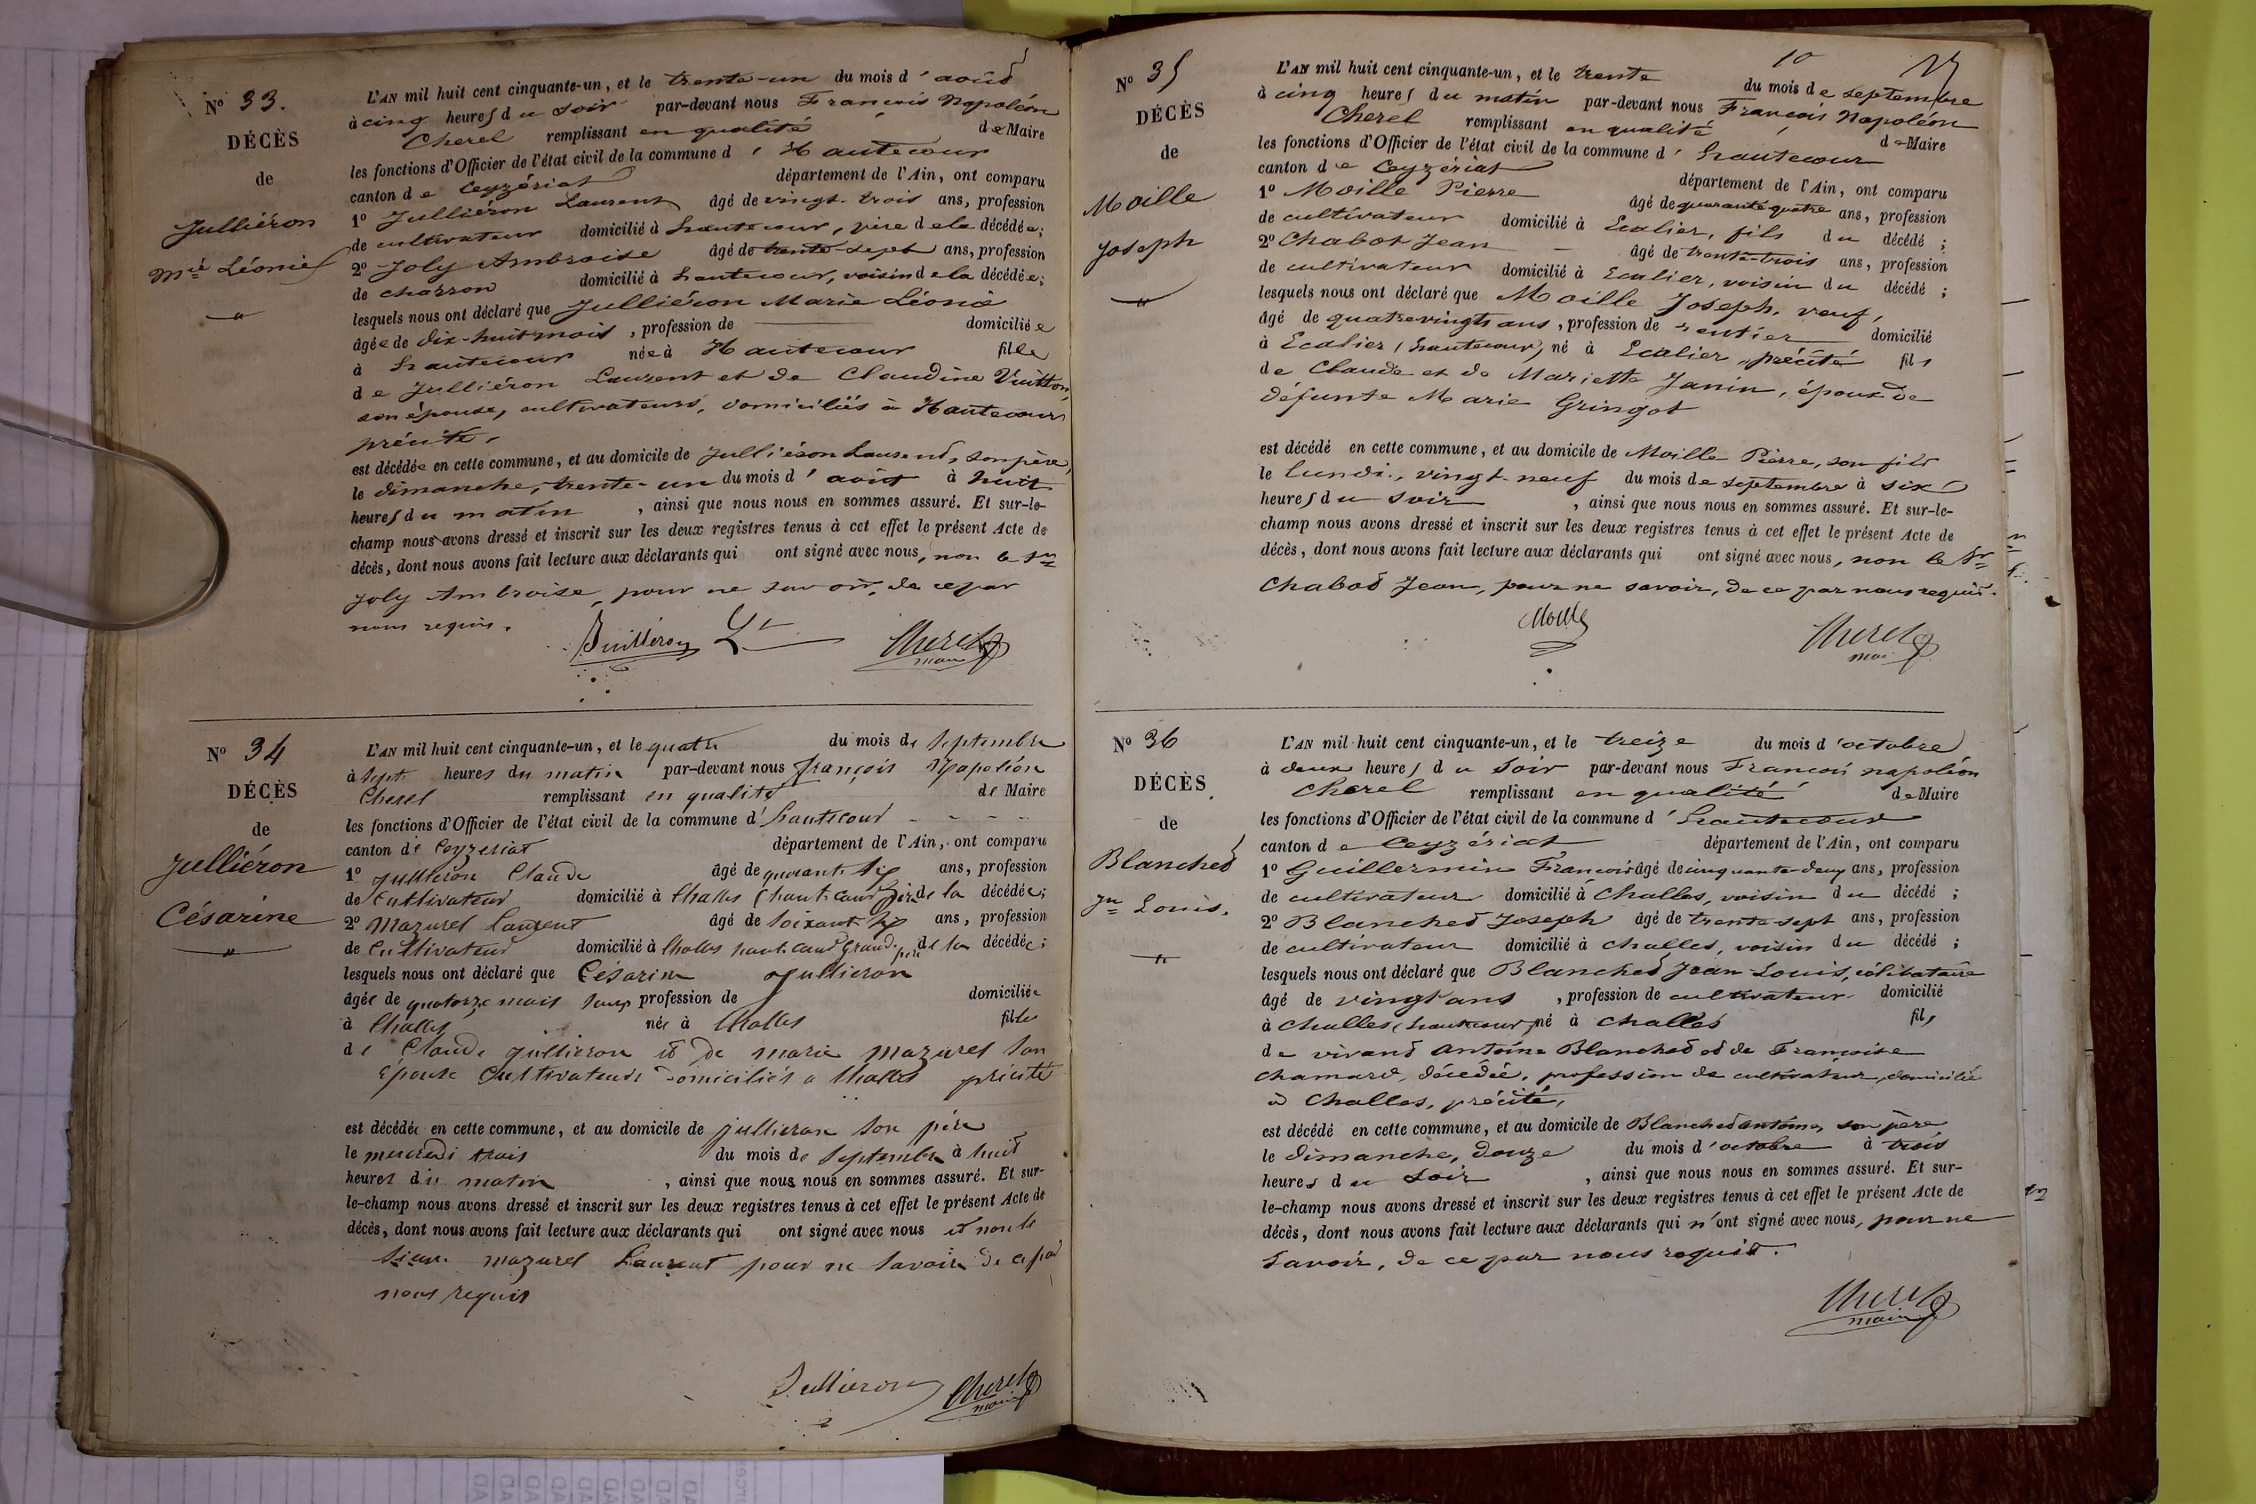 N° 33.
DÉCÈS
de
Julliéron
Mie Léonie
L'AN mil huit cent cinquante-un, et le trente-un du mois d'août
à cinq heures du soir par-devant nous François Napoléon
Cherel remplissant en qualité de Maire
les fonctions d'Officier de l'état civil de la commune d'Hautecour
canton de Ceyzériat département de l'Ain, ont comparu
1° Julliéron Laurent âgé de vingt-trois ans, profession
de cultivateur domicilié à hautecour, père de la décédée;
2° Joly Ambroise âgé de trente-sept ans, profession
de charron domicilié à hautecour, voisin de la décédée;
lesquels nous ont déclaré que Julliéron Marie Léonie
âgée de dix-huit mois, profession de domiciliée
à hautecour née à Hautecour fille
de Julliéron Laurent et de Claudine Vuitton,
son épouse, cultivateurs, domiciliés à Hautecour
précité,
est décédée en cette commune, et au domicile de Julliéron Laurent, son père,
le dimanche, trente-un du mois d'août à huit
heures du matin, ainsi que nous nous en sommes assuré. Et sur-le-
champ nous avons dressé et inscrit sur les deux registres tenus à cet effet le présent Acte de
décès, dont nous avons fait lecture aux déclarants qui ont signé avec nous, non le Sr
Joly Ambroise, pour ne savoir, de ce par
nous requis.
Juilléron Lt Cherel
maire
N° 34
DÉCÈS
de
Julliéron
Césarine
L'AN mil huit cent cinquante-un, et le quatre du mois de Septembre
à Sept heures du matin par-devant nous françois Napoléon
Cherel remplissant en qualité de Maire
les fonctions d'Officier de l'état civil de la commune d'hautecour
canton de Ceyzeriat département de l'Ain, ont comparu
1° Jullieron Claude âgé de quarante six ans, profession
de Cultivateur domicilié à Challes (hautecour) père de la décédée;
2° Mazuret Laurent âgé de Soixante six ans, profession
de Cultivateur domicilié à Challes hautecour Grand-père de la décédée;
lesquels nous ont déclaré que Césarine Jullieron
âgée de quatorze mois sans profession de domiciliée
à Challes née à Challes fille
de Claude Jullieron et de marie Mazuret son
épouse Cultivateurs domiciliés à Challes précité
est décédée en cette commune, et au domicile de Jullieron son père
le mercredi trois du mois de Septembre à huit
heures du matin, ainsi que nous nous en sommes assuré. Et sur-
le-champ nous avons dressé et inscrit sur les deux registres tenus à cet effet le présent Acte de
décès, dont nous avons fait lecture aux déclarants qui ont signé avec nous et non le
Sieur mazuret Laurent pour ne Savoir de ce par
nous requis
Jullieron Cherel
maire
10
N° 35
DÉCÈS
de
Moille
Joseph
L'AN mil huit cent cinquante-un, et le trente du mois de septembre
à cinq heures du matin par-devant nous François Napoléon
Cherel remplissant en qualité de Maire
les fonctions d'Officier de l'état civil de la commune d'hautecour
canton de Ceyzériat département de l'Ain, ont comparu
1° Moille Pierre âgé de quarante quatre ans, profession
de cultivateur domicilié à Ecalier, fils du décédé;
2° Chabot Jean âgé de trente-trois ans, profession
de cultivateur domicilié à Ecalier, voisin du décédé;
lesquels nous ont déclaré que Moille Joseph, veuf,
âgé de quatrevingts ans, profession de rentier domicilié
à Ecalier (hautecour) né à Ecalier, précité fils
de Claude et de Mariette Janin, époux de
défunte Marie Gringot
est décédé en cette commune, et au domicile de Moille Pierre, son fils
le lundi, vingt-neuf du mois de septembre à six
heures du soir, ainsi que nous nous en sommes assuré. Et sur-le-
champ nous avons dressé et inscrit sur les deux registres tenus à cet effet le présent Acte de
décès, dont nous avons fait lecture aux déclarants qui ont signé avec nous, non le Sr
Chabot Jean, pour ne savoir, de ce par nous requis.
Moille Cherel
maire
N° 36
DÉCÈS
de
Blanchet
Jn Louis.
L'AN mil huit cent cinquante-un, et le treize du mois d'octobre
à deux heures du soir par-devant nous François napoléon
Cherel remplissant en qualité de Maire
les fonctions d'Officier de l'état civil de la commune d'hautecour
canton de Ceyzériat département de l'Ain, ont comparu
1° Guillermin François âgé de cinquante-deux ans, profession
de cultivateur domicilié à Challes, voisin du décédé;
2° Blanchet Joseph âgé de trente-sept ans, profession
de cultivateur domicilié à challes, voisin du décédé;
lesquels nous ont déclaré que Blanchet Jean Louis, célibataire
âgé de vingt ans, profession de cultivateur domicilié
à challes (hautecour) né à challes fils
de vivant Antoine Blanchet et de Françoise
chamard, décédée, profession de cultivateur, domicilié
à Challes, précité,
est décédé en cette commune, et au domicile de Blanchet antoine, son père
le dimanche, douze du mois d'octobre à trois
heures du soir, ainsi que nous nous en sommes assuré. Et sur-
le-champ nous avons dressé et inscrit sur les deux registres tenus à cet effet le présent Acte de
décès, dont nous avons fait lecture aux déclarants qui n'ont signé avec nous, pour ne
savoir, de ce par nous requis.
Cherel
maire